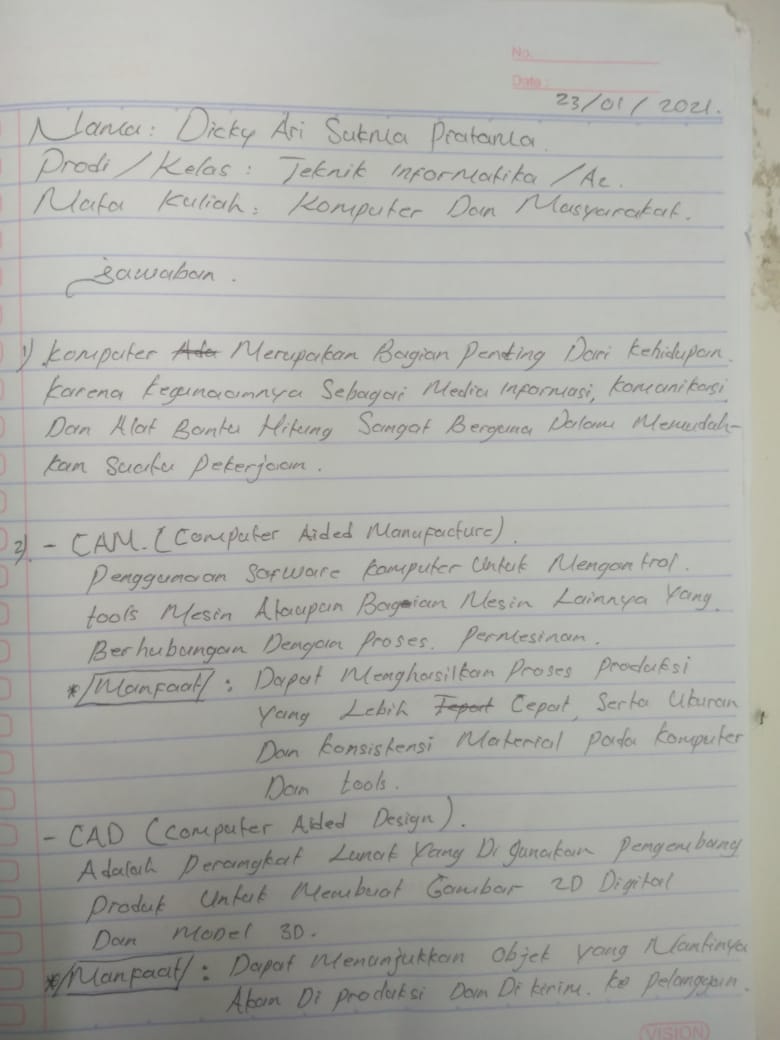 No.
Date:
23/01/2021.
Nama: Dicky Ari Sukma Pratama.
Prodi/Kelas: Teknik Informatika/A2.
Mata Kuliah: Komputer Dan Masyarakat.
Jawaban.
1) Komputer Ada Merupakan Bagian Penting Dari Kehidupan.
Karena Kegunaannya Sebagai Media Informasi, Komunikasi
Dan Alat Bantu Hitung Sangat Berguna Dalam Memudah-
kan Suatu Pekerjaan.
2) - CAM. (Computer Aided Manufacture).
Penggunaan Sofware Komputer Untuk Mengontrol.
tools Mesin Ataupun Bagian Mesin Lainnya Yang
Berhubungan Dengan Proses. Permesinan.
*/Manfaat/: Dapat Menghasilkan Proses Produksi
Yang Lebih Tepat Cepat, Serta Ukuran
Dan Konsistensi Material pada Komputer
Dan tools.
- CAD (Computer Aided Design).
Adalah Perangkat Lunak Yang Di gunakan Pengembang
Produk Untuk Membuat Gambar 2D Digital
Dan Model 3D.
*/Manfaat/: Dapat Menunjukkan Objek Yang Nantinya
Akan Di produksi Dan Di kirim. ke Pelanggan.
VISION